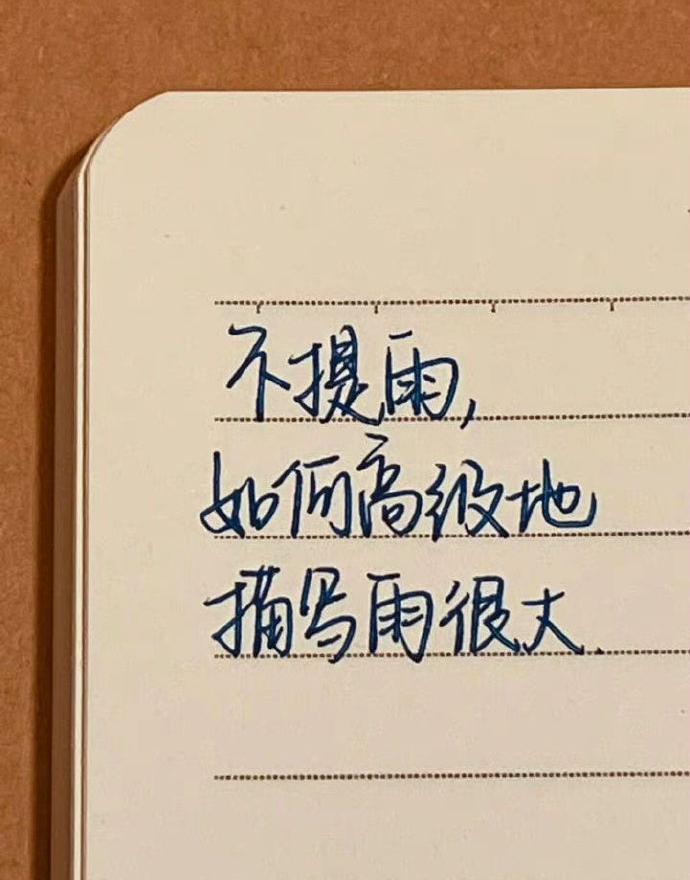 不提雨，
如何高级地
描写雨很大.